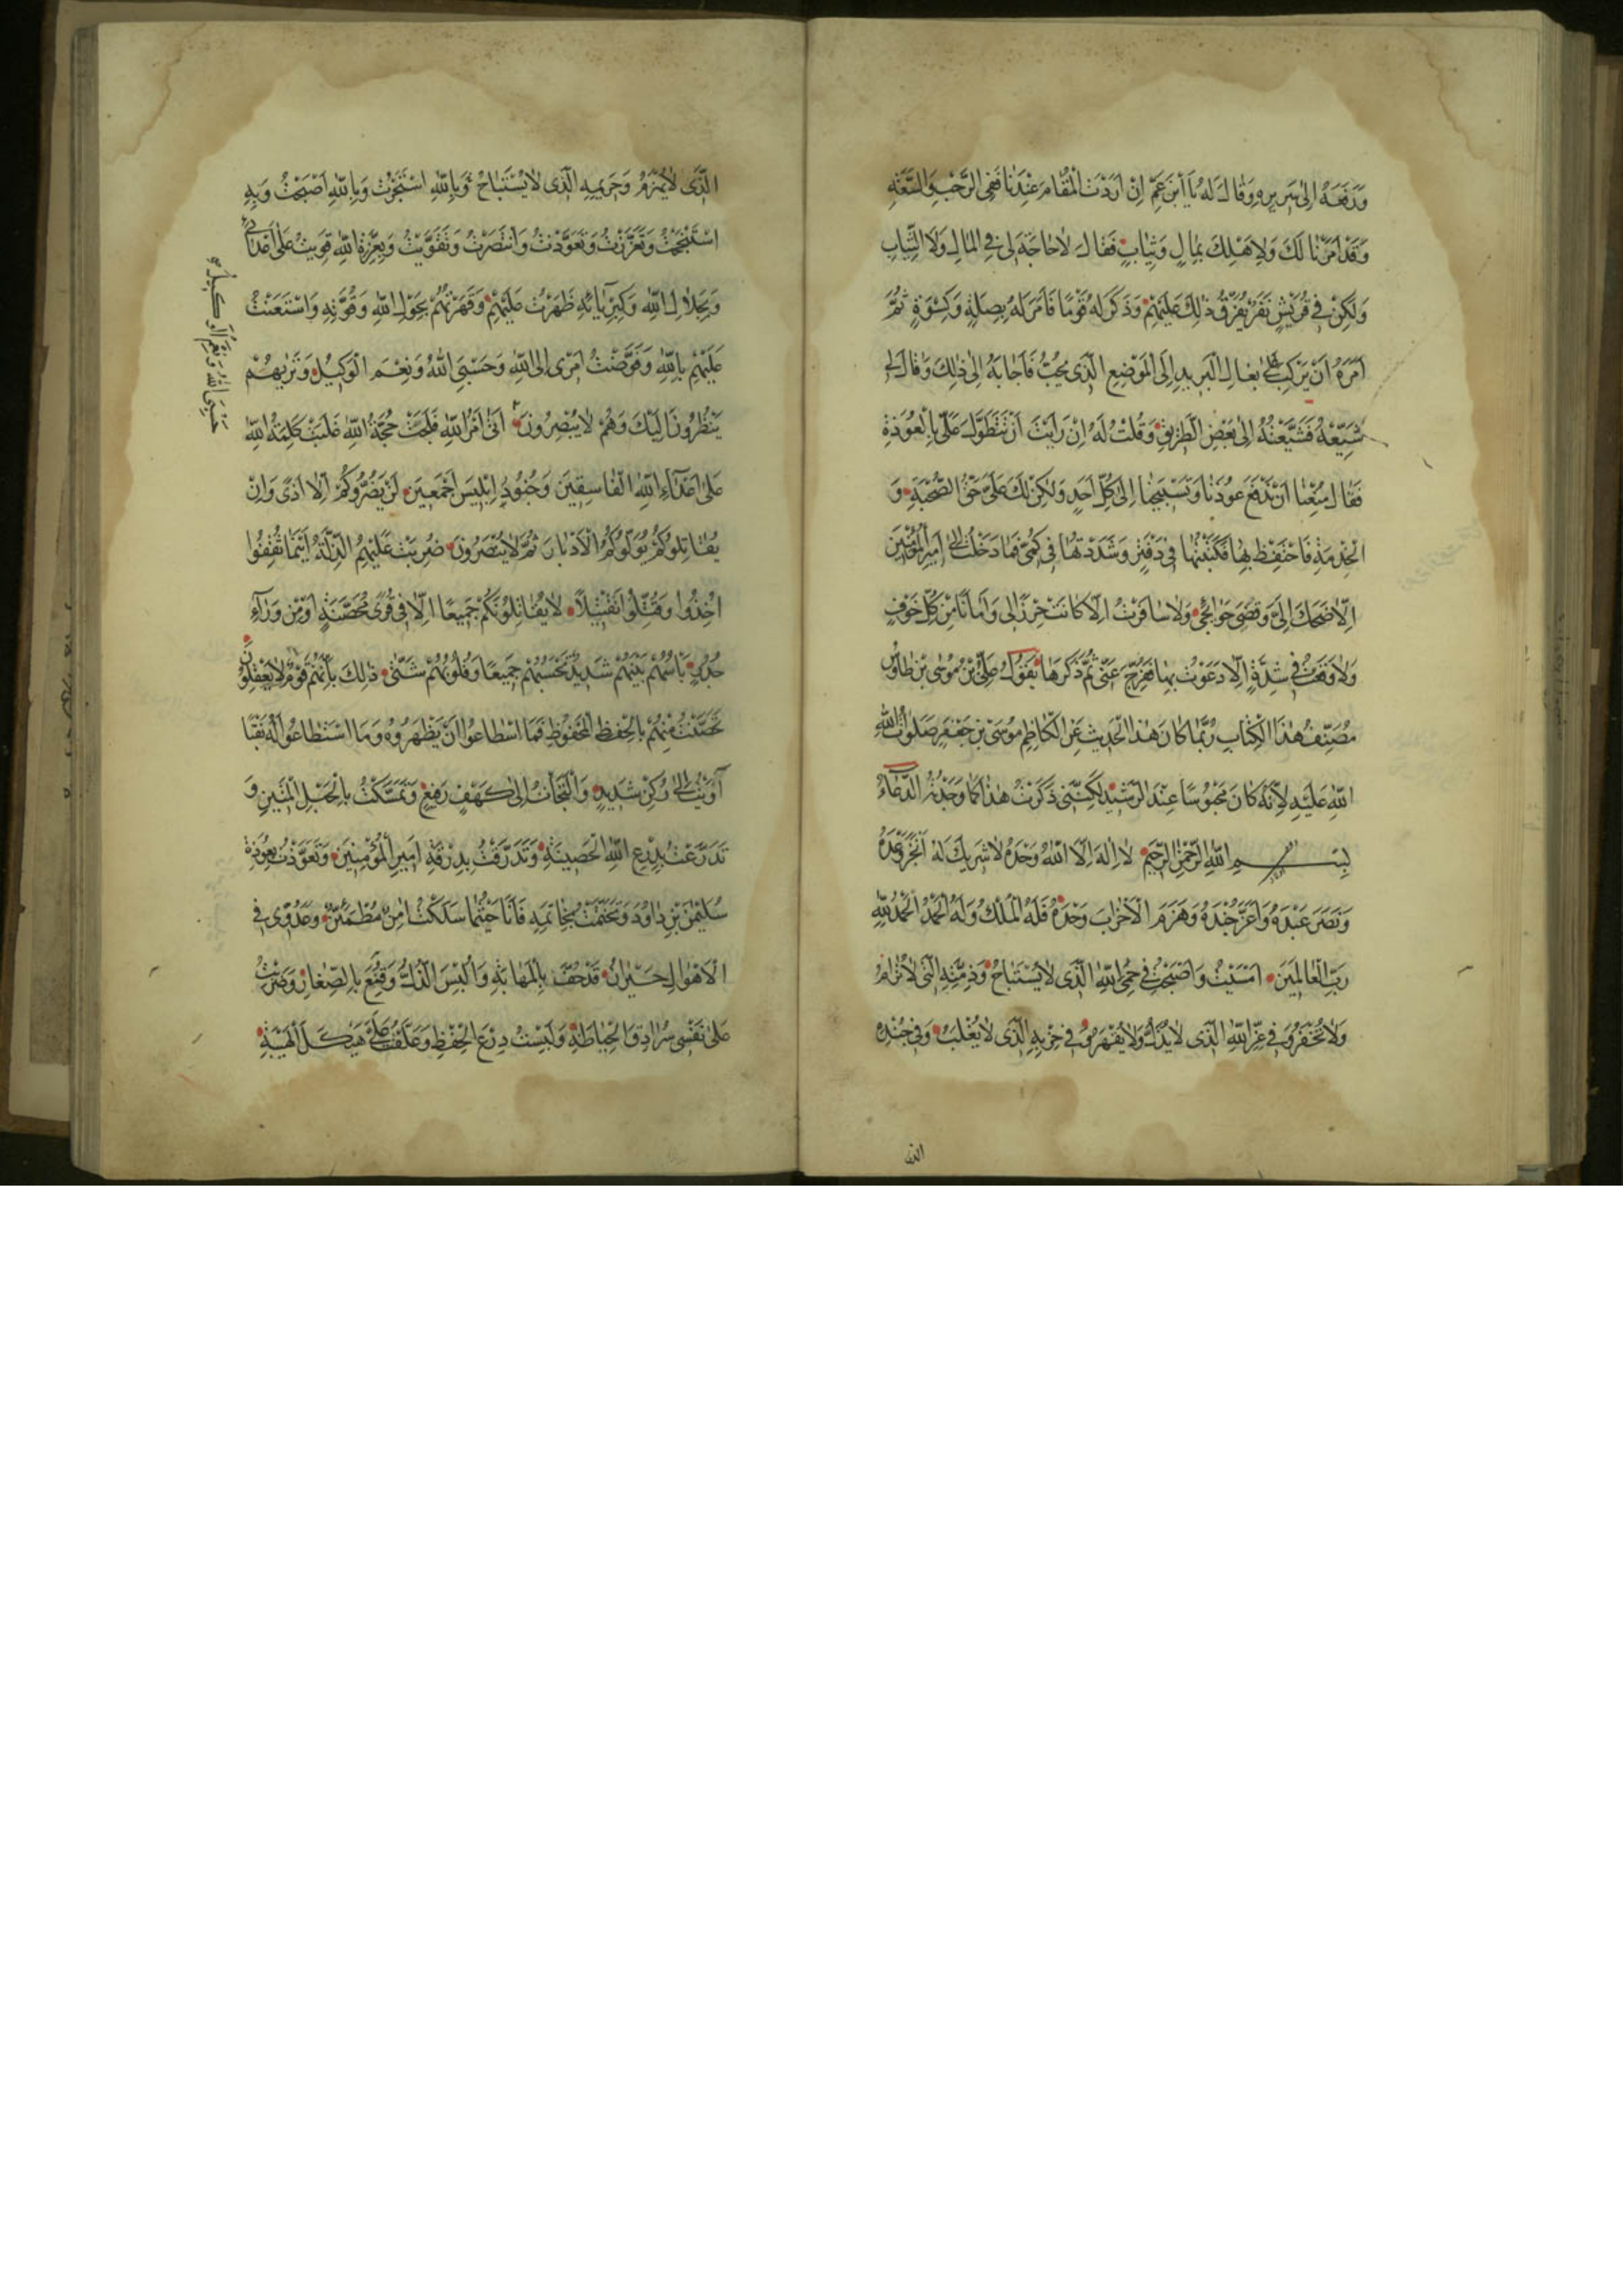 وَرَفَعَهُ اِلٰى سَرِيرِهِ وَقَالَ لَهُ يَا ابْنَ عَمِّ اِنْ اَرَدْتَ الْمُقٰامَ عِنْدَنٰا فَفِى الرَّحْبِ وَالسَّعَةِ
وَقَدْ اَمَرْنٰا لَكَ وَلِاَهْلِكَ بِمٰالٍ وَثِيٰابٍ فَقٰالَ لٰا حٰاجَةَ لِى فِى الْمٰالِ وَلَا الثِّيٰابِ
وَلٰكِنْ فِى قُرَيْشٍ نَفَرٌ يُفَرَّقُ ذٰلِكَ عَلَيْهِمْ وَذَكَرَ لَهُ قَوْمًا فَاَمَرَ لَهُ بِصِلَةٍ وَكِسْوَةٍ ثُمَّ
اَمَرَهُ اَنْ يَرْكَبَ عَلٰى بِغٰالِ الْبَرِيدِ اِلَى الْمَوْضِعِ الَّذِى يُحِبُّ فَاَجٰابَهُ اِلٰى ذٰلِكَ وَقٰالَ لِى
شَيِّعْهُ فَشَيَّعْتُهُ اِلٰى بَعْضِ الطَّرِيقِ وَقُلْتُ لَهُ اِنْ رَاَيْتَ اَنْ تَتَطَوَّلَ عَلَىَّ بِالْعُوذَةِ
فَقٰالَ مُنِعْنٰا اَنْ نَدْفَعَ عُوَذَنٰا وَتَسْبِيحَنٰا اِلٰى كُلِّ اَحَدٍ وَلٰكِنْ لَكَ عَلَىَّ حَقُّ الصُّحْبَةِ وَ
الْخِدْمَةِ فَاحْتَفِظْ بِهٰا فَكَتَبْتُهٰا فِى دَفْتَرٍ وَشَدَدْتُهٰا فِى كُمِّى فَمٰا دَخَلْتُ اِلٰى اَمِيرِ الْمُؤْمِنِينَ
اِلّٰا ضَحِكَ اِلَىَّ وَقَضٰى حَوٰائِجِى وَلٰا سٰافَرْتُ اِلّٰا كٰانَتْ حِرْزًا لِى وَاَمٰانًا مِنْ كُلِّ خَوْفٍ
وَلٰا وَقَعْتُ فِى شِدَّةٍ اِلّٰا دَعَوْتُ بِهٰا فَفُرِّجَ عَنِّى ثُمَّ ذَكَرَهٰا يَقُولُ عَلِىُّ بْنُ مُوسَى بْنِ طٰاوُسٍ
مُصَنِّفُ هٰذَا الْكِتٰابِ رُبَّمٰا كٰانَ هٰذَا الْحَدِيثُ عَنِ الْكٰاظِمِ مُوسَى بْنِ جَعْفَرٍ صَلَوٰاتُ اللّٰهِ
اللّٰهِ عَلَيْهِ لِاَنَّهُ كٰانَ مَحْبُوسًا عِنْدَ الرَّشِيدِ لٰكِنَّنِى ذَكَرْتُ هٰذٰا كَمٰا وَجَدْتُهُ الدُّعٰاءُ
بِسْمِ اللّٰهِ الرَّحْمٰنِ الرَّحِيمِ لٰا اِلٰهَ اِلَّا اللّٰهُ وَحْدَهُ لٰا شَرِيكَ لَهُ اَنْجَزَ وَعْدَهُ
وَنَصَرَ عَبْدَهُ وَاَعَزَّ جُنْدَهُ وَهَزَمَ الْاَحْزٰابَ وَحْدَهُ فَلَهُ الْمُلْكُ وَلَهُ الْحَمْدُ الْحَمْدُ لِلّٰهِ
رَبِّ الْعٰالَمِينَ اَمْسَيْتُ وَاَصْبَحْتُ فِى حِمَى اللّٰهِ الَّذِى لٰا يُسْتَبٰاحُ وَذِمَّتِهِ الَّتِى لٰا تُرٰامُ
وَلٰا تُخْفَرُ وَفِى عِزِّ اللّٰهِ الَّذِى لٰا يُذَلُّ وَلٰا يُقْهَرُ وَفِى حِزْبِهِ الَّذِى لٰا يُغْلَبُ وَفِى جُنْدِهِ
الذى
الَّذِى لٰا يُهْزَمُ وَحَرِيمِهِ الَّذِى لٰا يُسْتَبٰاحُ وَبِاللّٰهِ اسْتَجَرْتُ وَبِاللّٰهِ اَصْبَحْتُ وَبِهِ
اسْتَنْجَحْتُ وَتَعَزَّزْتُ وَتَعَوَّذْتُ وَانْتَصَرْتُ وَتَقَوَّيْتُ وَبِعِزَّةِ اللّٰهِ قَوِيتُ عَلٰى اَعْدٰائِى
وَبِجَلٰالِ اللّٰهِ وَكِبْرِيٰائِهِ ظَهَرْتُ عَلَيْهِمْ وَقَهَرْتُهُمْ بِحَوْلِ اللّٰهِ وَقُوَّتِهِ وَاسْتَعَنْتُ
عَلَيْهِمْ بِاللّٰهِ وَفَوَّضْتُ اَمْرِى اِلَى اللّٰهِ وَحَسْبِىَ اللّٰهُ وَنِعْمَ الْوَكِيلُ وَتَرٰيهُمْ
يَنْظُرُونَ اِلَيْكَ وَهُمْ لٰا يُبْصِرُونَ اَتٰى اَمْرُ اللّٰهِ فَلَجَتْ حُجَّةُ اللّٰهِ غَلَبَتْ كَلِمَةُ اللّٰهِ
عَلٰى اَعْدٰاءِ اللّٰهِ الْفٰاسِقِينَ وَجُنُودِ اِبْلِيسَ اَجْمَعِينَ لَنْ يَضُرُّوكُمْ اِلّٰا اَذًى وَاِنْ
يُقٰاتِلُوكُمْ يُوَلُّوكُمُ الْاَدْبٰارَ ثُمَّ لٰا يُنْصَرُونَ ضُرِبَتْ عَلَيْهِمُ الذِّلَّةُ اَيْنَمٰا ثُقِفُوا
اُخِذُوا وَقُتِّلُوا تَقْتِيلًا لٰا يُقٰاتِلُونَكُمْ جَمِيعًا اِلّٰا فِى قُرًى مُحَصَّنَةٍ اَوْ مِنْ وَرٰاءِ
جُدُرٍ بَاْسُهُمْ بَيْنَهُمْ شَدِيدٌ تَحْسَبُهُمْ جَمِيعًا وَقُلُوبُهُمْ شَتّٰى ذٰلِكَ بِاَنَّهُمْ قَوْمٌ لٰا يَعْقِلُونَ
تَحَصَّنْتُ مِنْهُمْ بِالْحِفْظِ الْمَحْفُوظِ فَمَا اسْطٰاعُوا اَنْ يَظْهَرُوهُ وَمَا اسْتَطٰاعُوا لَهُ نَقْبًا
آوَيْتُ اِلٰى رُكْنٍ شَدِيدٍ وَالْتَجَاْتُ اِلٰى كَهْفٍ رَفِيعٍ وَتَمَسَّكْتُ بِالْحَبْلِ الْمَتِينِ وَ
تَدَرَّعْتُ بِدِرْعِ اللّٰهِ الْحَصِينَةِ وَتَدَرَّقْتُ بِدَرَقَةِ اَمِيرِ الْمُؤْمِنِينَ وَتَعَوَّذْتُ بِعُوذَةِ
سُلَيْمٰنَ بْنِ دٰاوُدَ وَتَخَتَّمْتُ بِخٰاتَمِهِ فَاَنَا حَيْثُمٰا سَلَكْتُ اٰمِنٌ مُطْمَئِنٌّ وَعَدُوِّى فِى
الْاَهْوٰالِ حَيْرٰانُ قَدْ حُفَّ بِالْمَهٰابَةِ وَاُلْبِسَ الذُّلَّ وَقُنِّعَ بِالصِّغٰارِ وَضَرَبْتُ
عَلٰى نَفْسِى سُرٰادِقَ الْحِيٰاطَةِ وَلَبِسْتُ دِرْعَ الْحِفْظِ وَعَلَّقْتُ عَلَىَّ هَيْكَلَ الْهَيْبَةِ
حَسْبِىَ اللّٰهُ وَنِعْمَ الْوَكِيلُ